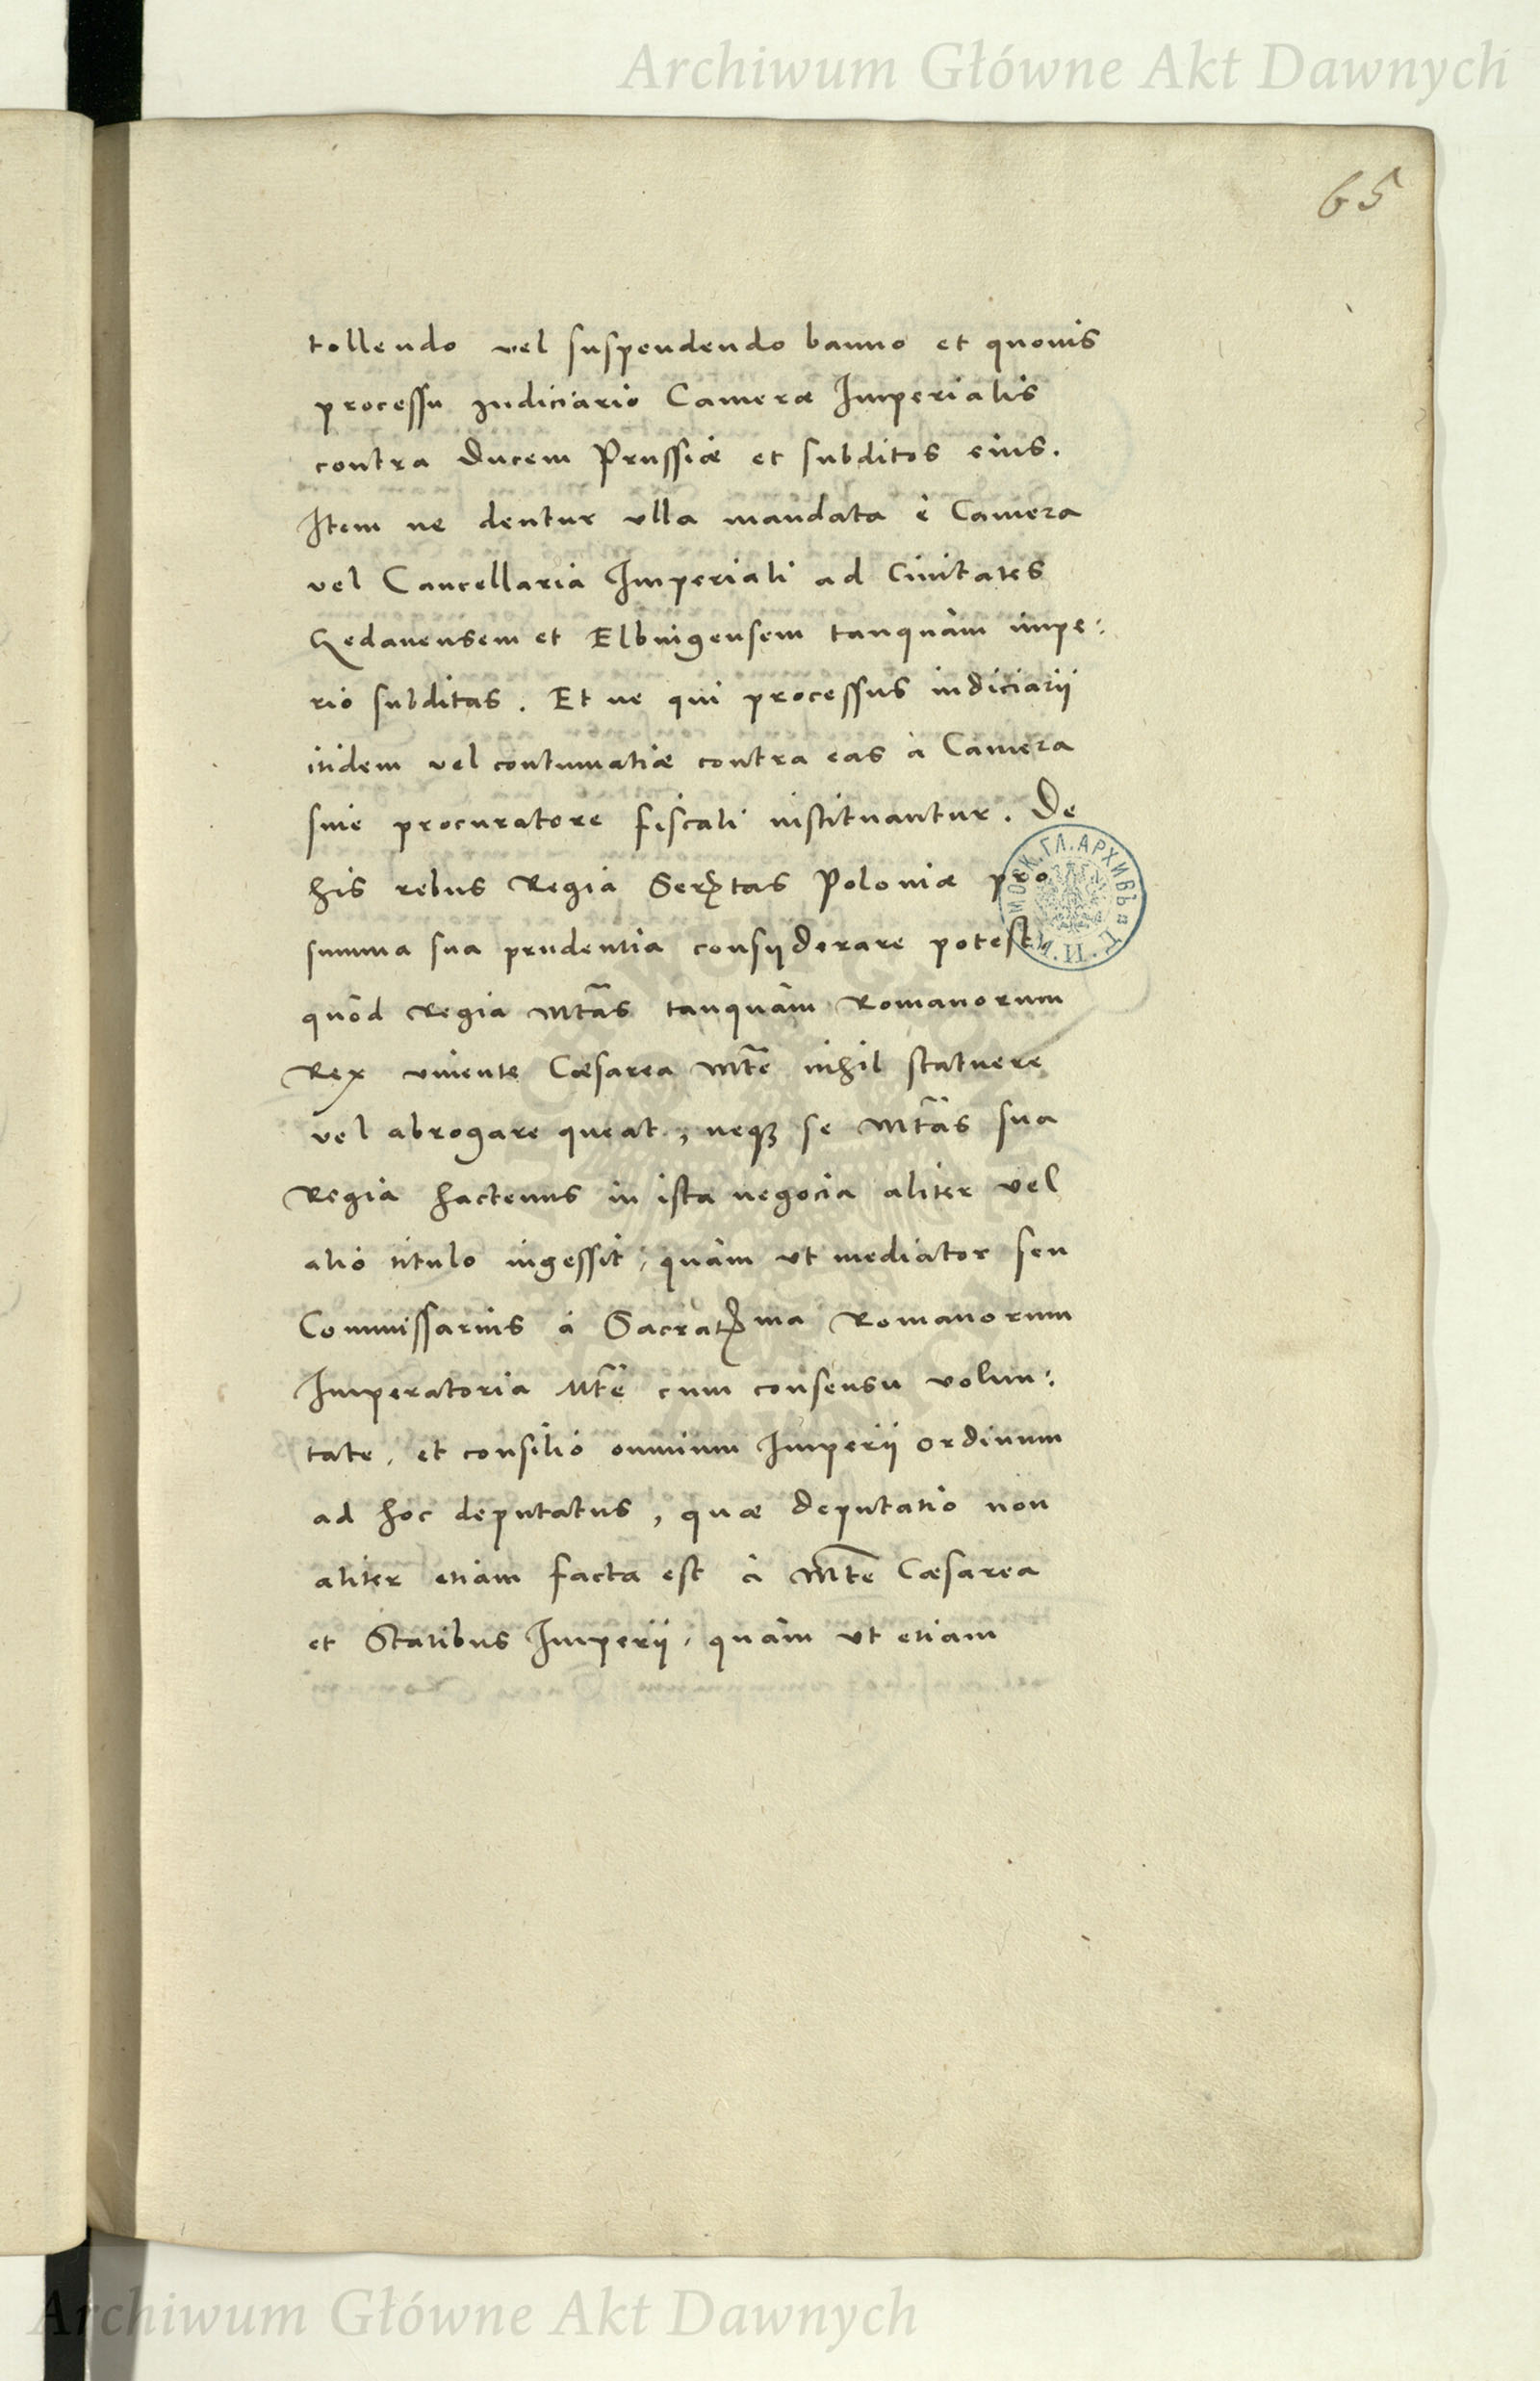 Archiwum Główne Akt Dawnych
65
tollendo vel suspendendo banno et quovis
processu iudiciario Cameræ Imperialis
contra Ducem Prussiæ et subditos eius.
Item ne dentur ulla mandata è Camera
vel Cancellaria Imperiali ad Civitates
Gedanensem et Elbingensem tanquàm impe:
rio subditas. Et ne qui processus iudiciarii
itidem vel contumatiæ contra eas à Camera
sive procuratore fiscali instituantur. De
his rebus Regia Serꝭtas Poloniæ pro
summa sua prudentia consyderare potest
quòd Regia Mtas tanquàm Romanorum
Rex vivente Cæsarea Mte nihil statuere
vel abrogare queat, neqꝫ se Mtas sua
Regia hactenus in ista negocia aliter vel
alio titulo ingessit, quàm ut mediator seu
Commissarius à Sacratꝭma Romanorum
Imperatoria Mte cum consensu volun:
tate, et consilio omnium Imperij ordinum
ad hoc deputatus, quæ deputatio non
aliter etiam facta est à Mte Cæsarea
et Statibus Imperij, quàm ut etiam
МОСК. ГЛ. АРХИВЪ М. И. Д.
Archiwum Główne Akt Dawnych